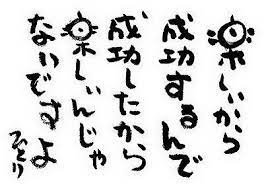 楽しいから
成功するんで
成功したから
楽しいんじゃ
ないですよ
ひとり